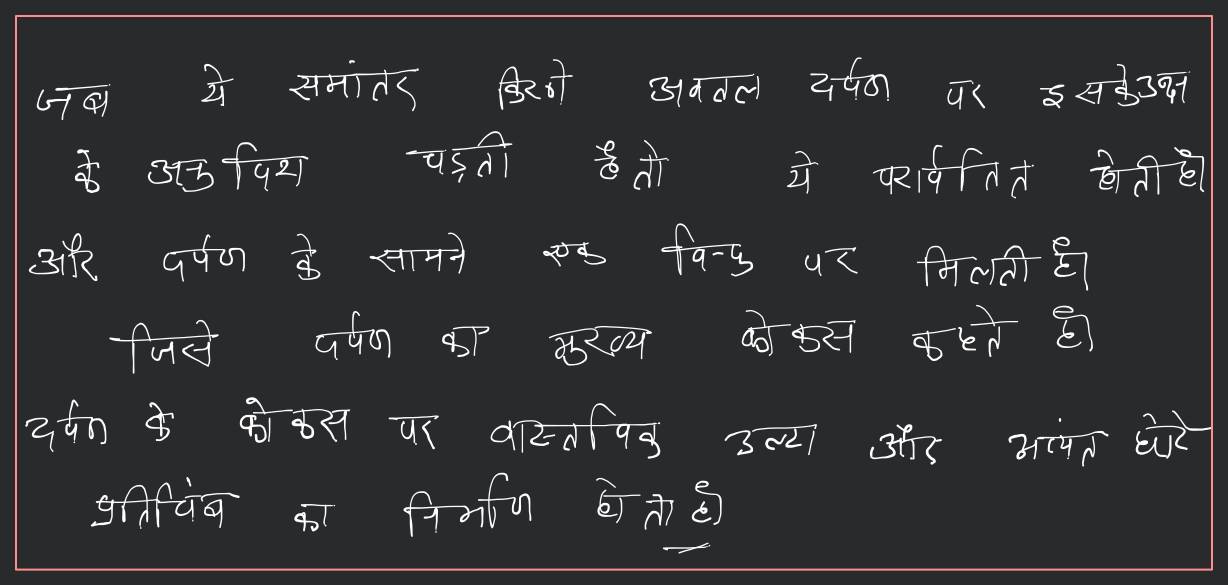 जब ये समांतर किरणे अवतल दर्पण पर इसके अक्ष
के अनुदिश पड़ती है तो ये परावर्तित होती है।
और दर्पण के सामने एक बिन्दु पर मिलती है।
जिसे दर्पण का मुख्य फोकस कहते है।
दर्पण के फोकस पर वास्तविक उल्टा और अत्यंत छोटे
प्रतिबिंब का निर्माण होता है।